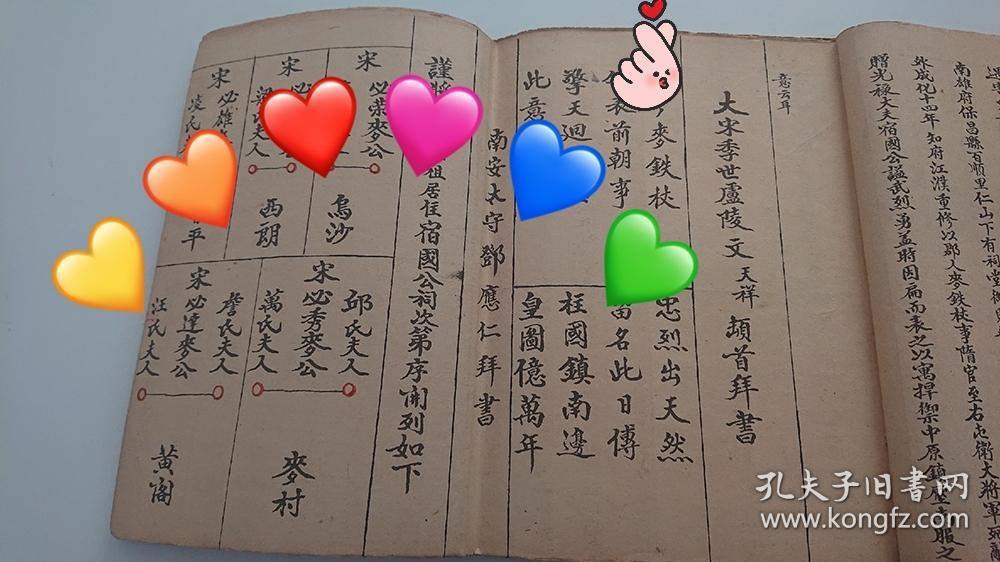 南雄府保昌縣百順里仁山下有祠堂
外成化十四年 知府江濮重修以郡人麥鉄杖事隋官至右屯衛大將軍
贈光祿大夫宿國公謚武烈勇盖時因扁而表之以寓捍禦中原鎮壓
服之
意云耳
大宋季世廬陵文天祥 頓首拜書
麥鉄杖 忠烈出天然
前朝事 留名此日傳
擎天迴 柱國鎮南邊
此意 皇圖億萬年
南安太守鄧應仁拜書
謹將 祖居住宿國公祠次第序開列如下
宋 必榮麥公
烏沙
宋 必 梁氏夫人
西朗
宋 必雄 凌氏
平
邱氏夫人
宋必秀麥公
萬氏夫人
麥村
詹氏夫人
宋必達麥公
汪氏夫人
黄阁
孔夫子旧书网
www.kongfz.com